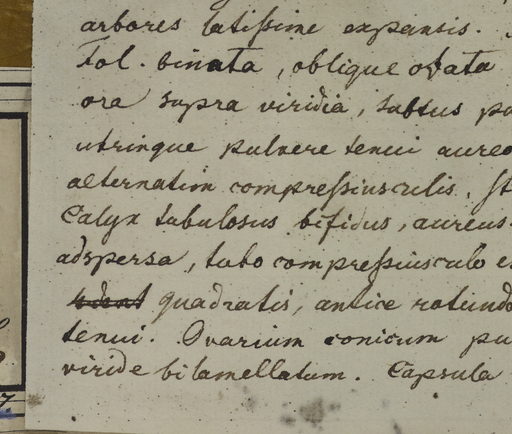 arbores latissime expansis.
Fol. binata, oblique ovata
ora supra viridia, subtus pu
utrinque pulvere tenui aureo
alternatim compressiusculis. St
Calyx tubulosus bifidus, aureus
adspersa, tubo compressiusculo e
quadratis, antice rotundo
tenui. Ovarium conicum pu
viride bilamellatum. Capsula